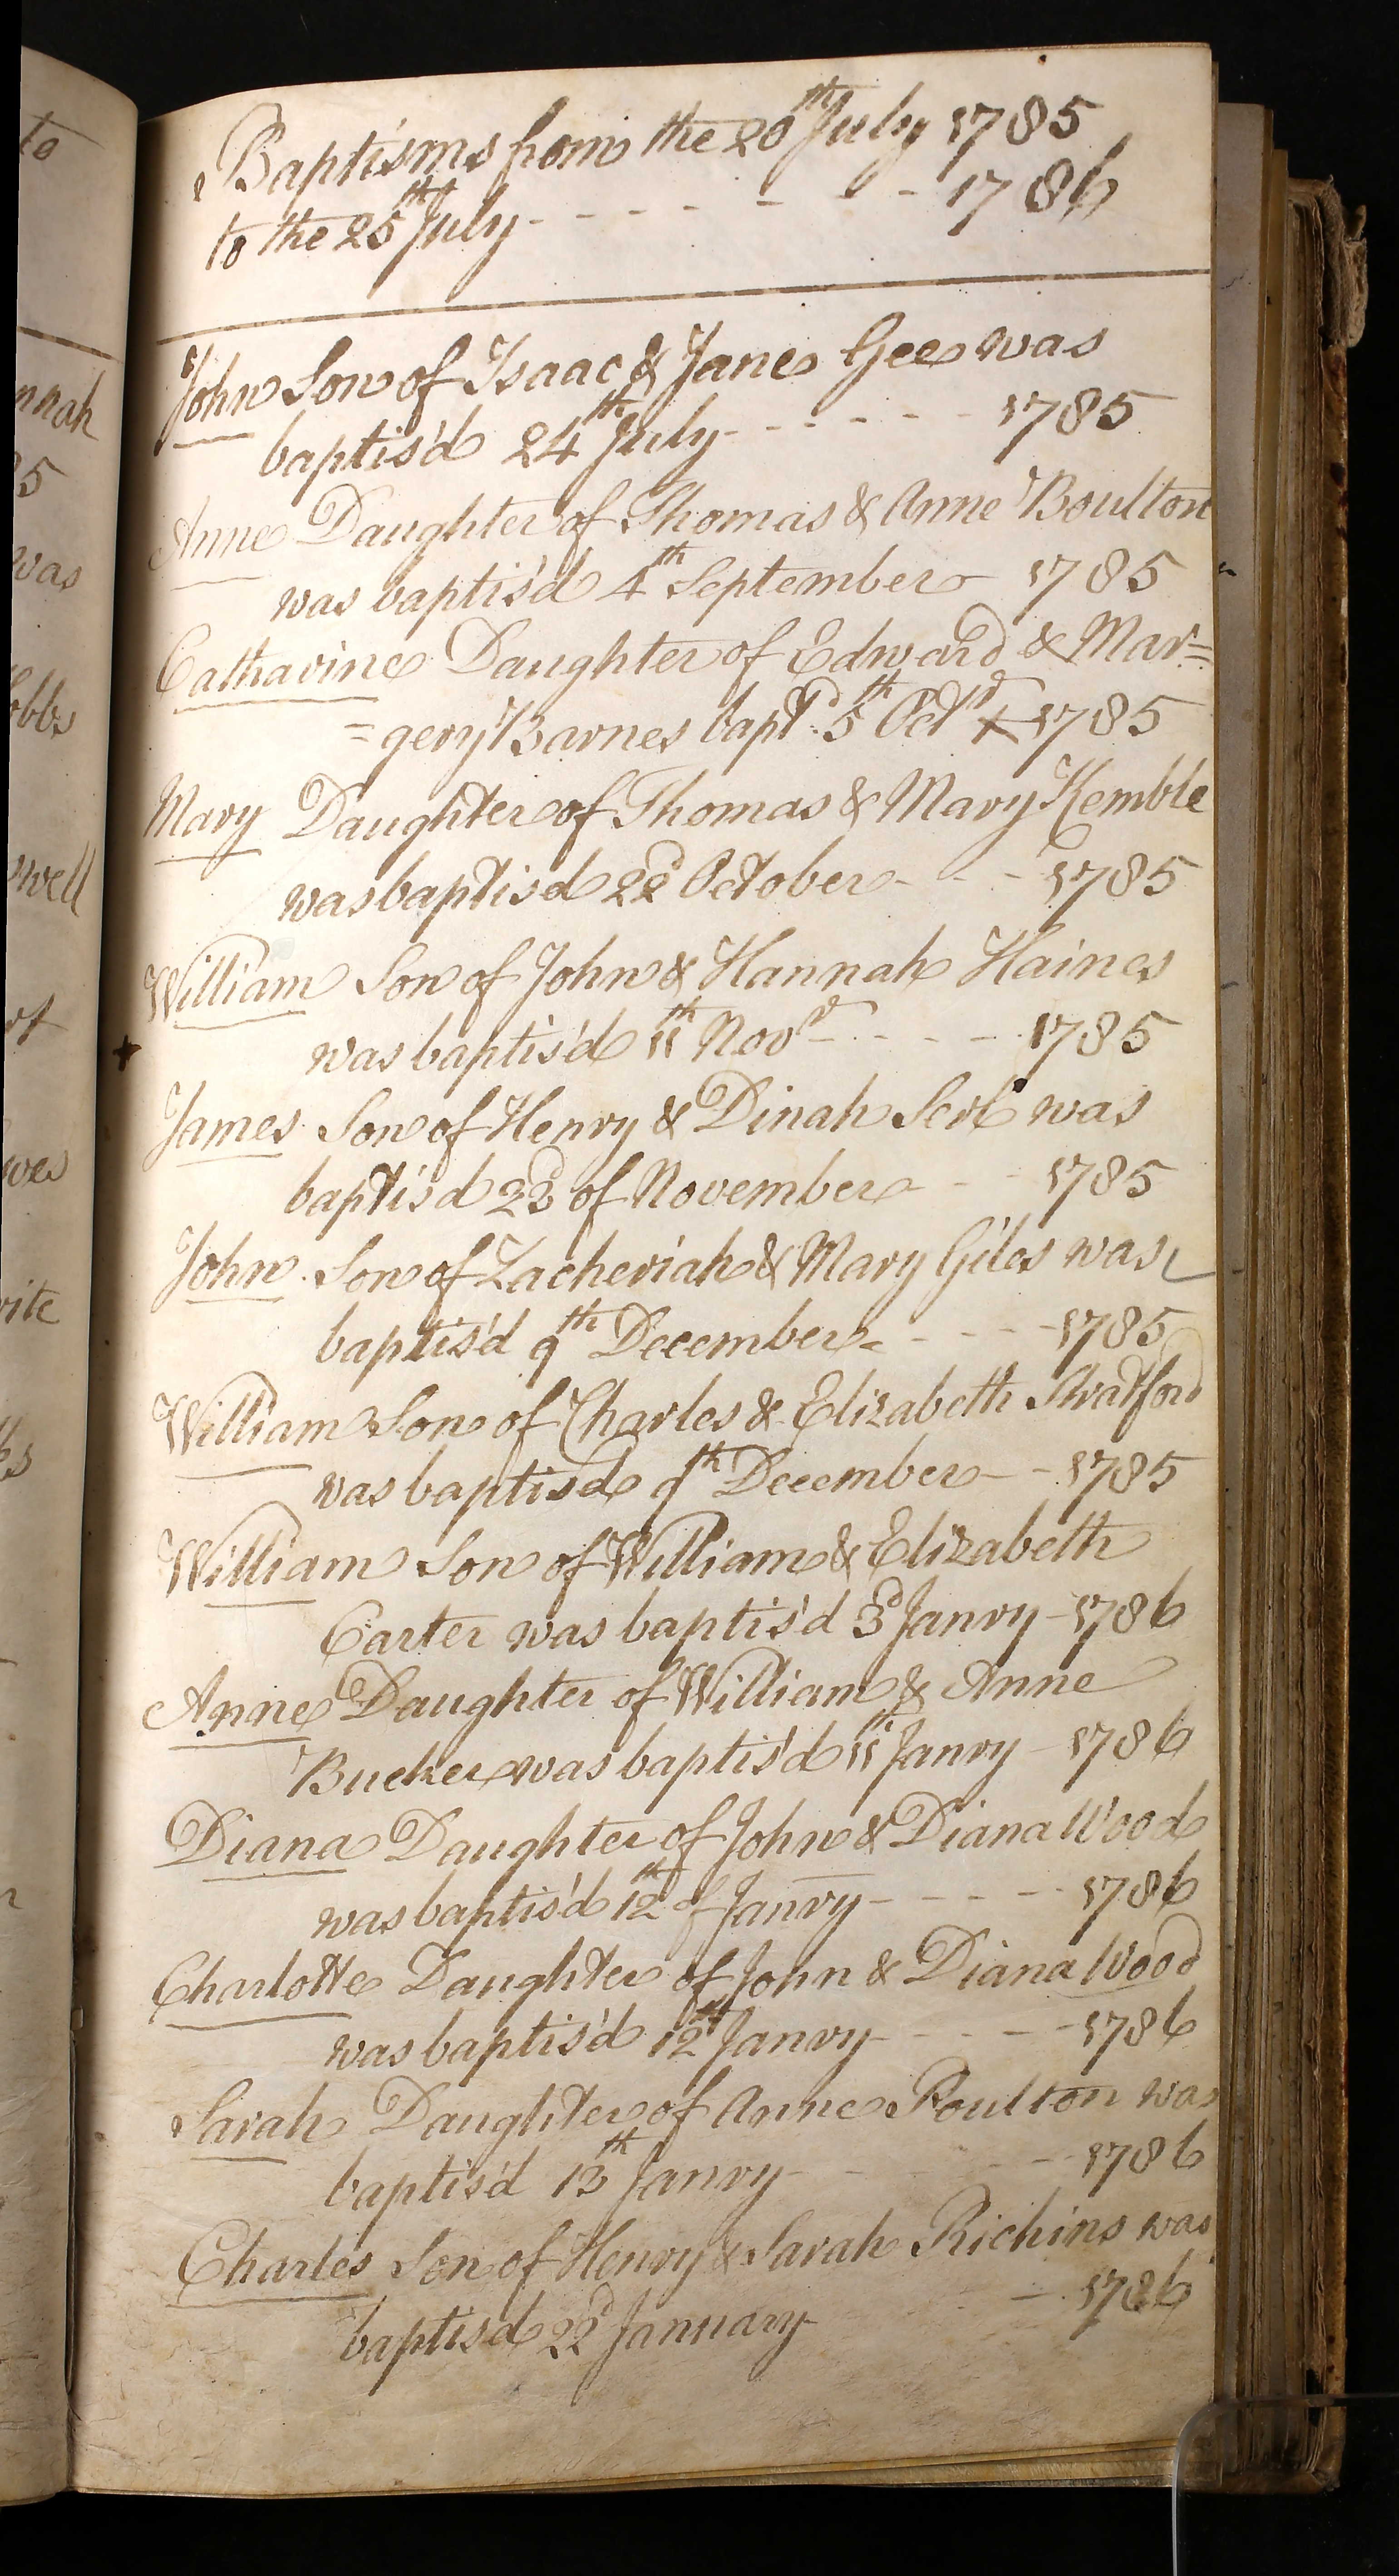 Baptisms from the 20th July 1785
to the 25th July - - - - - - - 1786
John Son of Isaac & Jane Gee was
baptis'd 24th July - - - - - 1785
Anne Daughter of Thomas & Anne Boulton
was baptis'd 4th September - 1785
Catharine Daughter of Edward & Mar=
=gery Barnes bapt.d 5th Octr 1785
Mary Daughter of Thomas & Mary Kemble
was baptisd 22d October - - - 1785
William Son of John & Hannah Haines
was baptis'd 11th Novr - - - - 1785
James Son of Henry & Dinah was
baptis'd 23d of November - - 1785
John Son of Zacheriah & Mary Giles was
baptis'd 9th December - - - - 1785
William Son of Charles & Elizabeth Stratford
was baptisd 9th December - - 1785
William Son of William & Elizabeth
Carter was baptis'd 3d Janry - 1786
Anne Daughter of William & Anne
Bucker was baptis'd 11th Janry - 1786
Diana Daughter of John & Diana Wood
was baptis'd 12th of Janry - - - - - 1786
Charlotte Daughter of John & Diana Wood
was baptis'd 12th Janry - - - - 1786
Sarah Daughter of Anne Poulton was
baptis'd 13th Janry - - - - 1786
Charles Son of Henry & Sarah Richins was
baptis'd 22d January - 1786